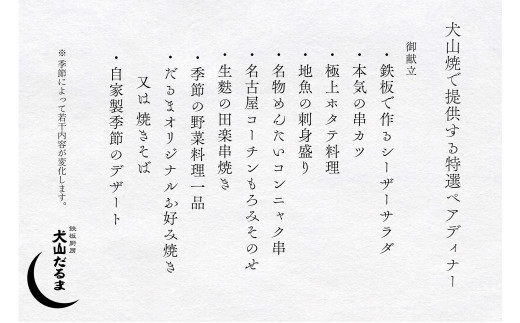 犬山焼で提供する特選ペアディナー
御献立
・鉄板で作るシーザーサラダ
・本気の串カツ
・極上ホタテ料理
・地魚の刺身盛り
・名物めんたいコンニャク串
・名古屋コーチンもろみそのせ
・生麩の田楽串焼き
・季節の野菜料理一品
・だるまオリジナルお好み焼き
又は 焼きそば
・自家製季節のデザート
※季節によって若干内容が変化します。
鉄板厨房
犬山だるま